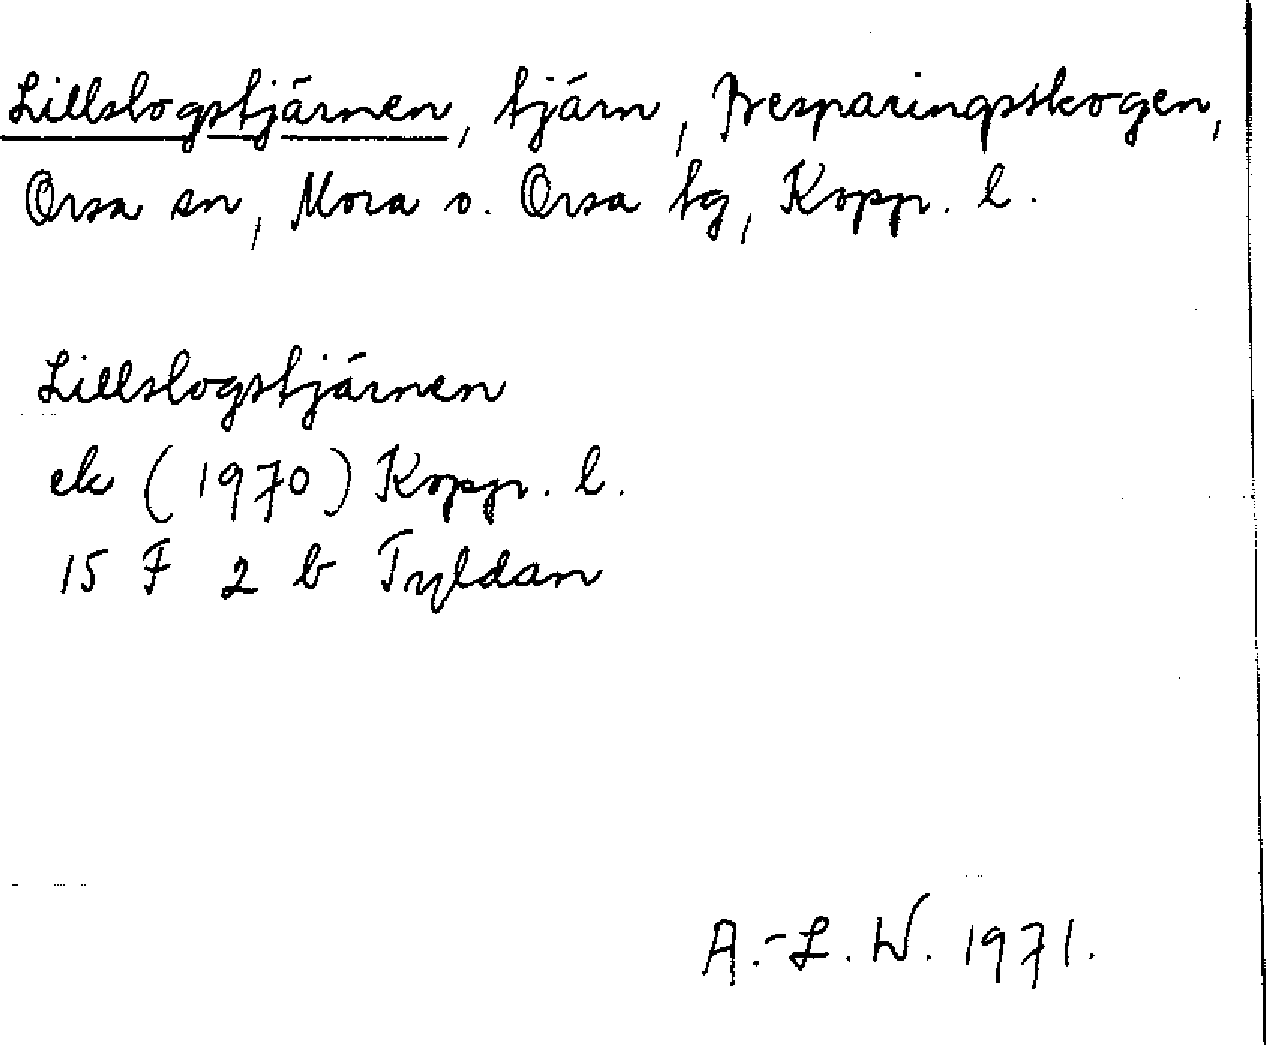 Lillslogstjärnen, tjärn, Besparingsskogen,
Orsa sn, Mora o. Orsa tg, Kopp. l.
Lillslogstjärnen
ek (1970) Kopp. l.
15 F 2 b Tyldan
A.-L. W. 1971.